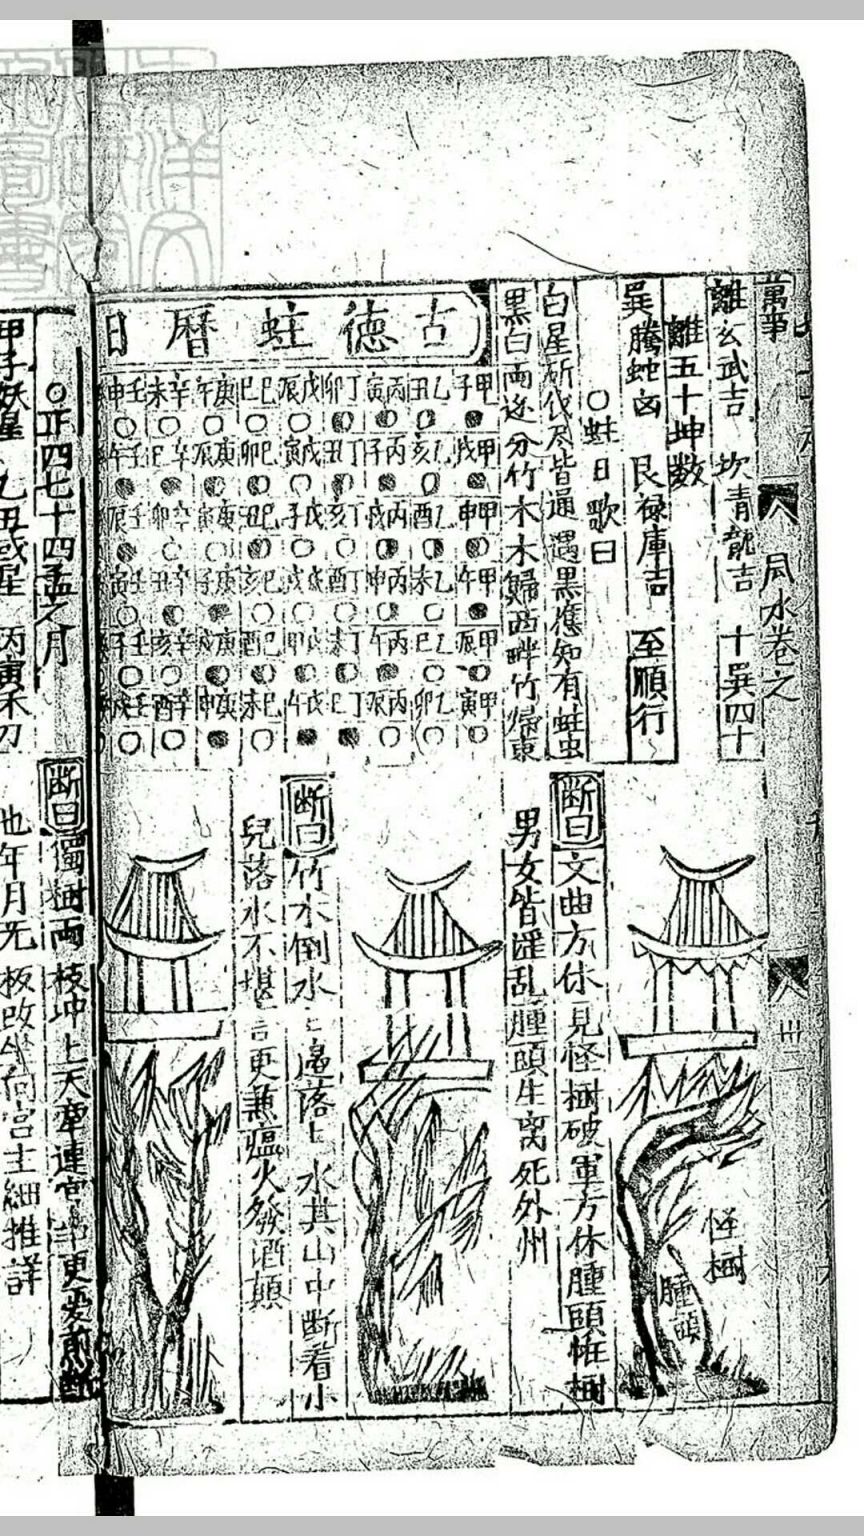 萬事
風水卷之
卅二
離玄武吉 坎青龍吉 十巽四十
離五十坤数
巽騰蛇凶 艮禄庫吉 至順行
○蛀日歌曰
白星斫伐尽皆通 遇黒應知有蛀虫
黒白兩边分竹木 木歸西畔竹歸東
古德蛀曆日
甲子 乙丑 丙寅 丁卯 戊辰 己巳 庚午 辛未 壬申
甲戌 乙亥 丙子 丁丑 戊寅 己卯 庚辰 辛巳 壬午
甲申 乙酉 丙戌 丁亥 戊子 己丑 庚寅 辛卯 壬辰
甲午 乙未 丙申 丁酉 戊戌 己亥 庚子 辛丑 壬寅
甲辰 乙巳 丙午 丁未 戊申 己酉 庚戌 辛亥 壬子
甲寅 乙卯 丙辰 丁巳 戊午 己未 庚申 辛酉 壬戌
怪樹
腫頭
断曰文曲方休見怪樹破軍方休腫頭怪樹
男女皆淫乱腫頭生离死外州
断曰竹木倒水
落 水其山中断看小
兒落水不堪言更兼瘟火發酒顛
○正四七十四孟之月
甲子妖星 乙丑或星 丙寅禾刀
断曰獨樹兩枝冲上天牽連官事更憂煎
也年月无
板改坐向宫主細推詳